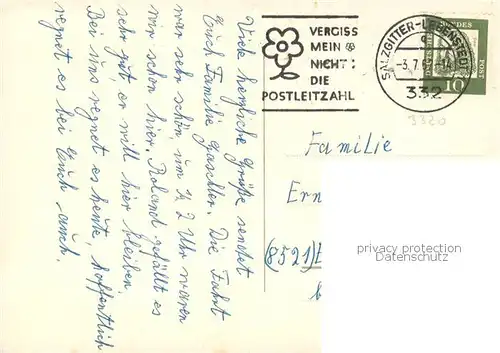 Viele herzliche Grüße sendet
Euch Familie Gaschler. Die Fahrt
war sehr schön um ½ 2 Uhr waren
wir schon hier. Roland gefällt es
sehr gut er will hier bleiben.
Bei uns regnet es heute, hoffentlich
regnet es bei Euch auch.
VERGISS
MEIN
NICHT:
DIE
POSTLEITZAHL
SALZGITTER-LEBENSTEDT
-3.7.6
332
10
POST
3320
Familie
Ern
(8521)
privacy protection
Datenschutz